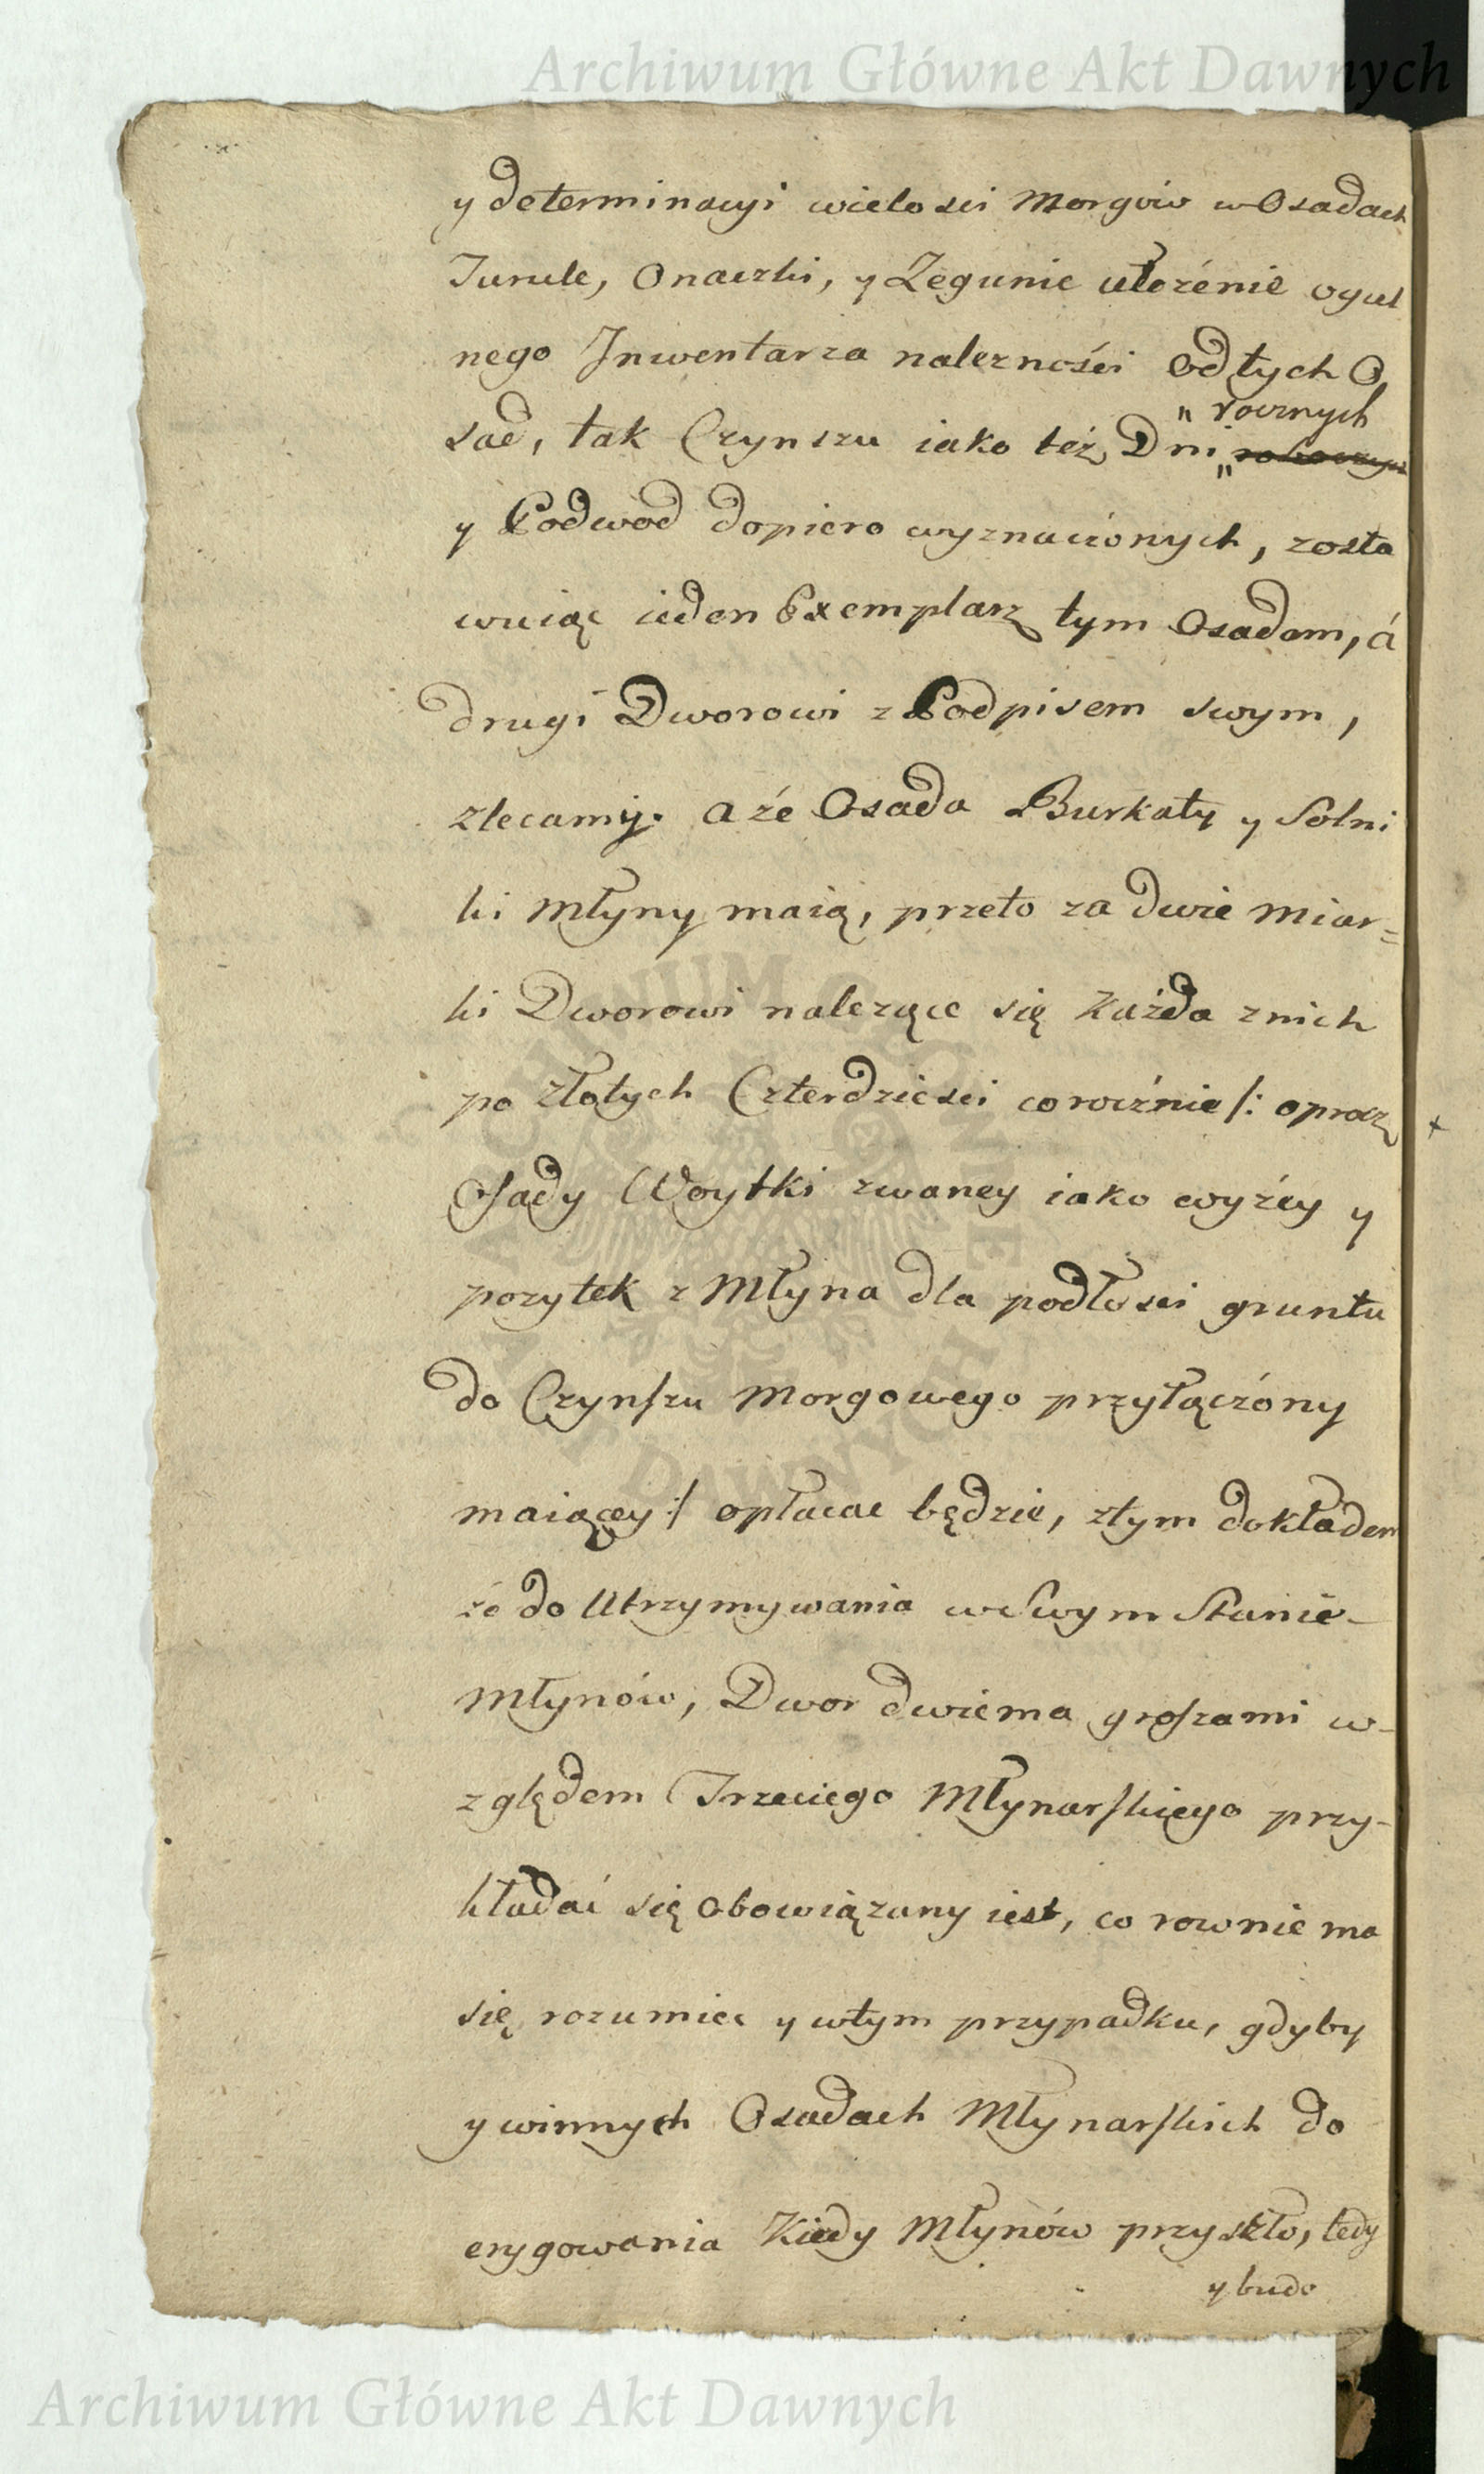 Archiwum Główne Akt Dawnych
y determinacyi wielosci Morgów w Osadach
Onaczki, y Zegunie ułożénie ogul
nego Inwentarza nalezności od tych O
„ rocznych
sad, tak Czynszu iako też Dni „ roboczych
y Podwod dopiero wyznaczonych, zosta
wuiąc ieden Exemplarz tym Osadom, á
drugi Dworowi z Podpisem swym,
zlecamy. a źe Osada Burkaty y Solni
ki Młyny maią, przeto za dwie miar=
ki Dworowi nalezące się Każda z nich
po złotych Czterdziesci corocznie /: oprocz
Osady Woytki zwaney iako wyźey y
pozytek z Młyna dla podłosci gruntu
do Czynszu Morgowego przyłączóny
maiącey :/ opłacac będzie, z tym dokładem
źe do Utrzymywania w Swym Stanie
Młynów, Dwor dwiema groszami w-
zględem Trzeciego Młynarskiego przy-
kładać się obowiązany iest, co rownie ma
się rozumiec y w tym przypadku, gdyby
y w innych Osadach Młynarskich do
erygowania Kiedy Młynów przyszło, tedy
y budo
ARCHIWUM GŁÓWNE AKT DAWNYCH
Archiwum Główne Akt Dawnych